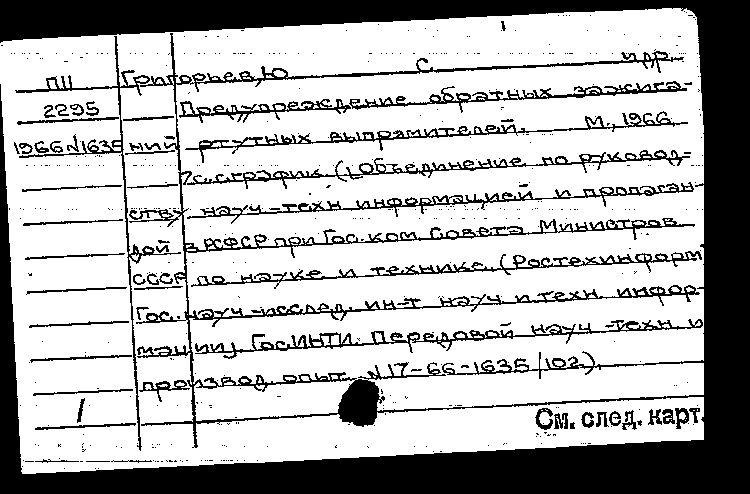 П11 Григорьев, Ю С. и др.
2295 Предупреждение обратных зажига-
1966 N1635 ний ртутных выпрямителей. М., 1966,
7с. с график. (Объединение по руковод-
ству науч-техн информацией и пропаган-
дой в РСФСР при Гос. ком. Совета Министров
СССР по науке и технике. (Ростехинформ)
Гос. науч-исслед. ин-т науч и техн. инфор-
мации, ГосИНТИ. Передовой науч-техн. и
производ. опыт. N17-66-1635/102).
1
См. след. карт.